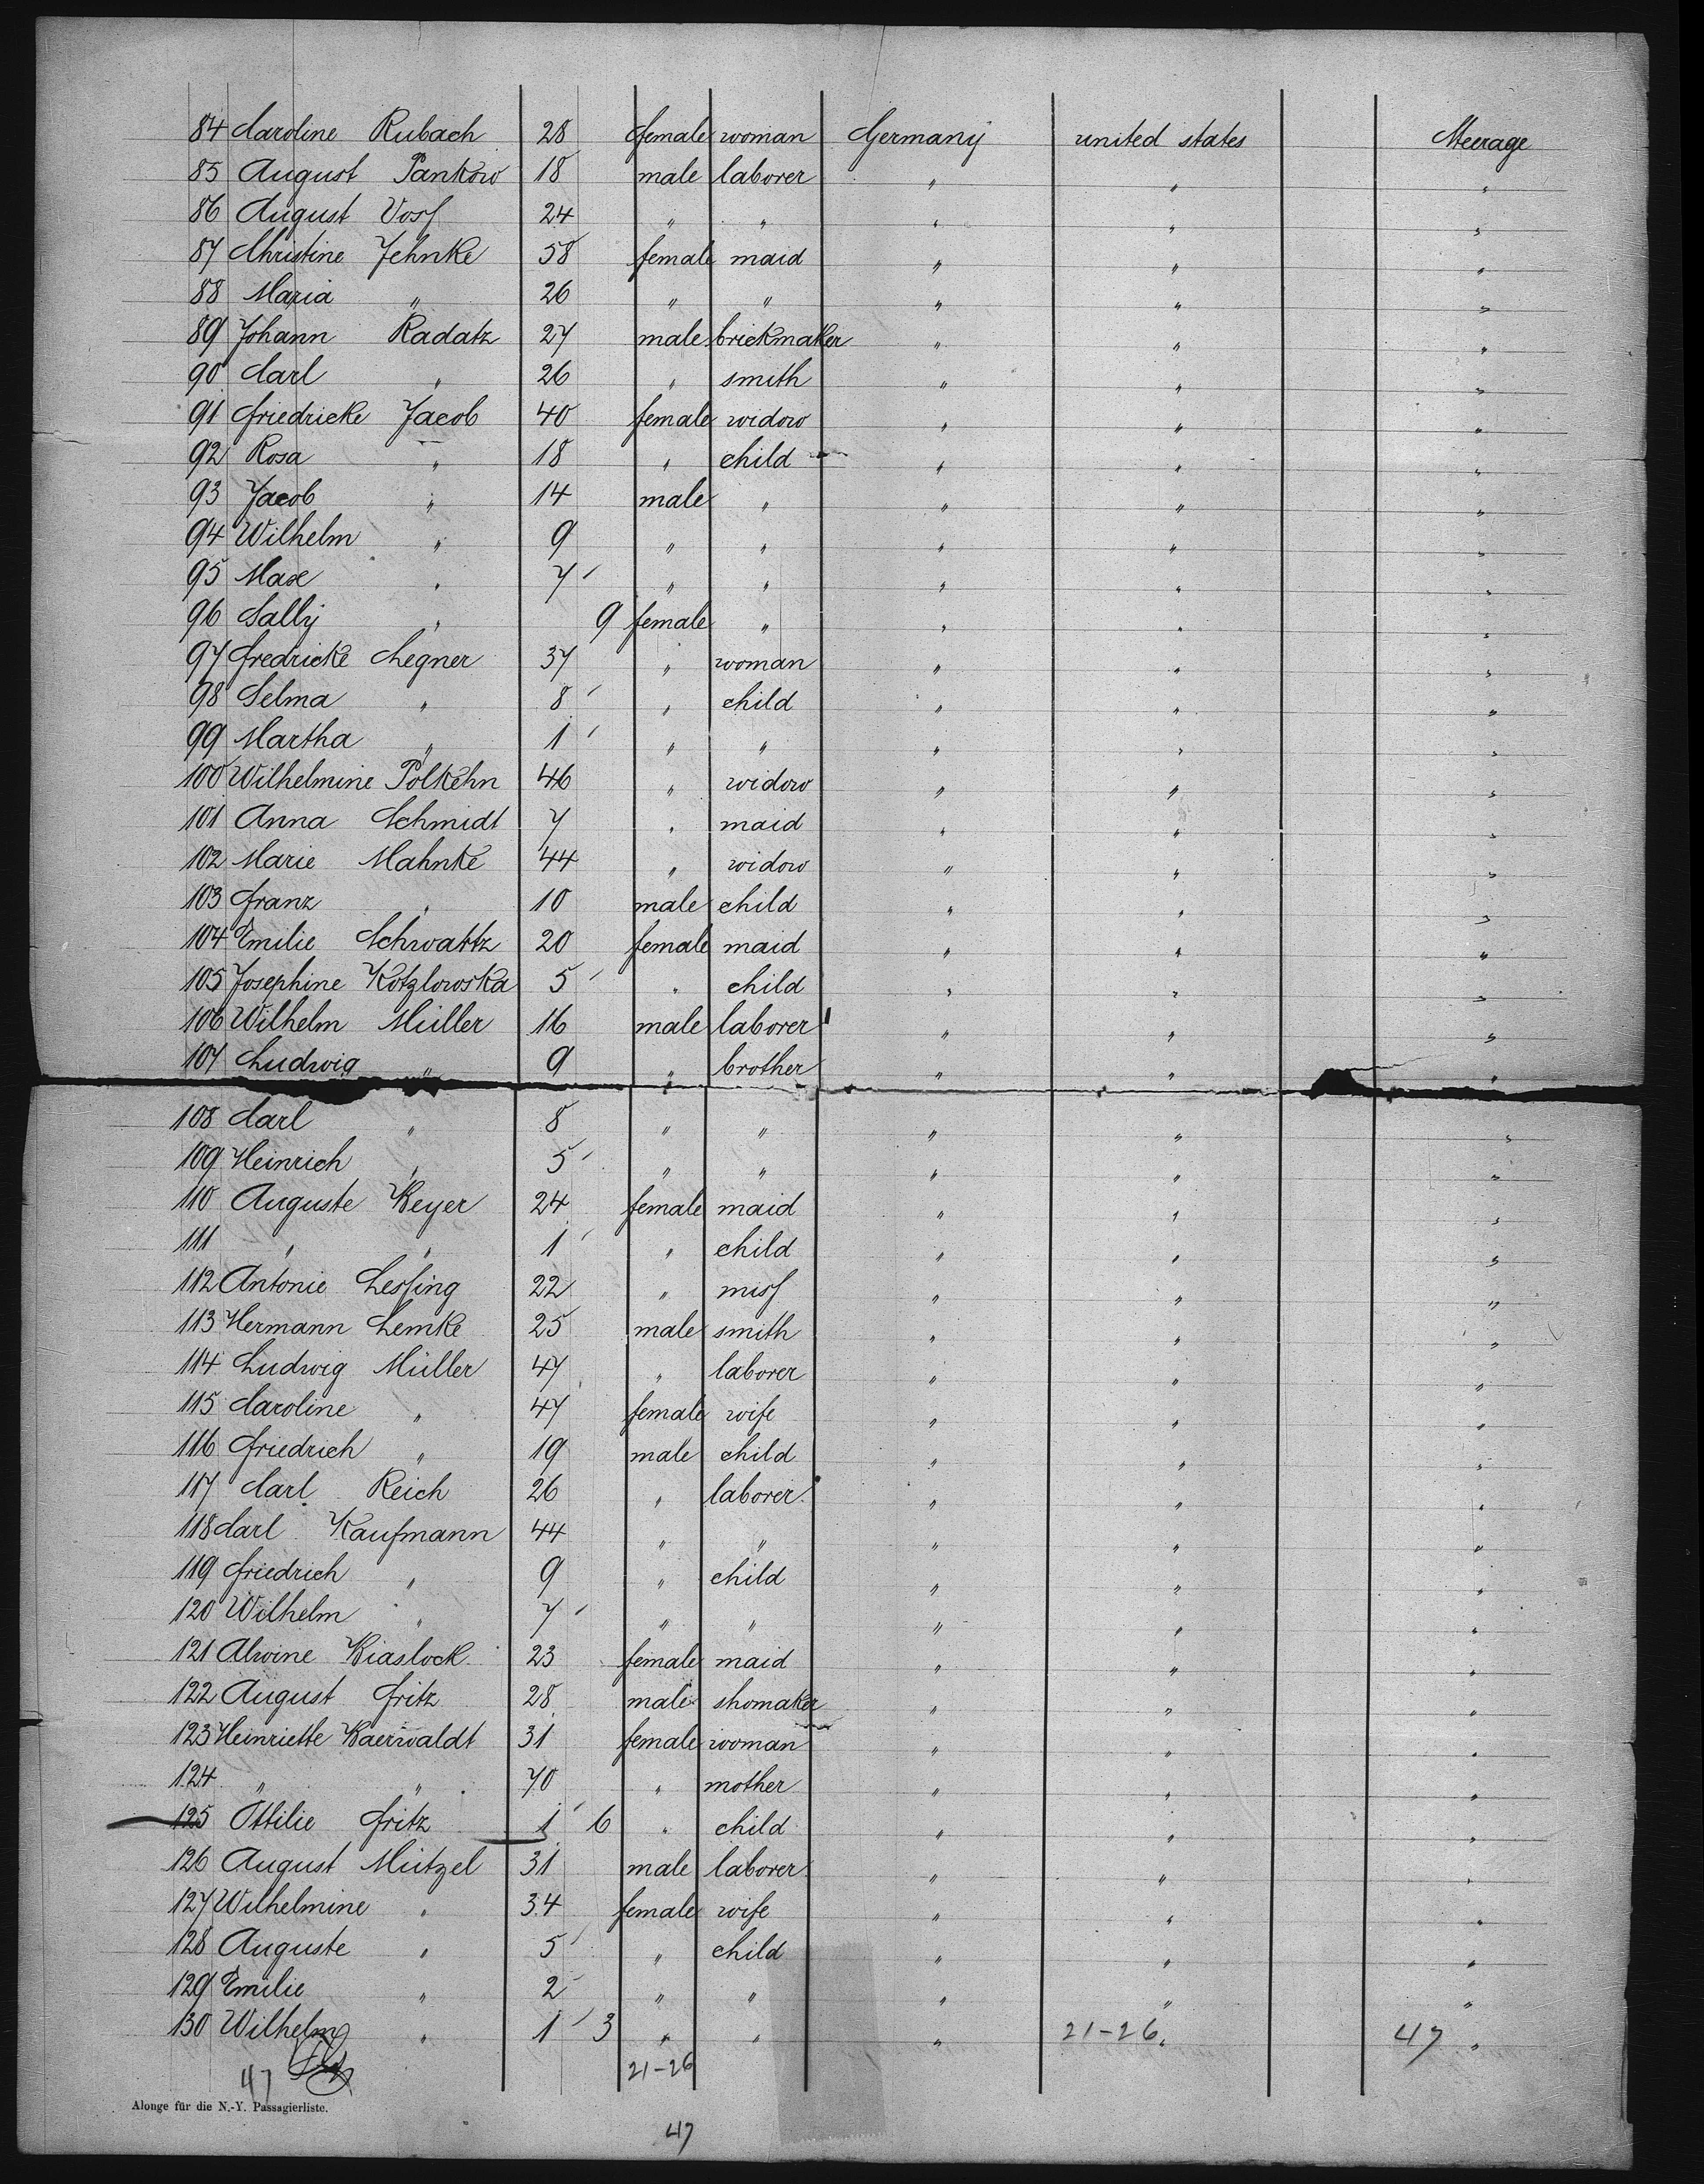 84 Caroline Rubach 28 female woman Germany united states Steerage
85 August Pankow 18 male laborer " " "
86 August Voss 24 " " " " "
87 Christine Jehnke 58 female maid " " "
88 Maria " 26 " " " " "
89 Johann Radatz 27 male brickmaker " " "
90 Carl " 26 " smith " " "
91 Friedricke Jacob 40 female widow " " "
92 Rosa " 18 " child " " "
93 Jacob " 14 male " " " "
94 Wilhelm " 9 " " " " "
95 Max " 7 " " " " "
96 Sally " 9 female " " " "
97 Fredricke Legner 37 " woman " " "
98 Selma " 8 " child " " "
99 Martha " 1 " " " " "
100 Wilhelmine Polkehn 46 " widow " " "
101 Anna Schmidt 7 " maid " " "
102 Marie Mahnke 44 " widow " " "
103 Franz " 10 male child " " "
104 Emilie Schwartz 20 female maid " " "
105 Josephine Kotzlowska 5 " child " " "
106 Wilhelm Müller 16 male laborer " " "
107 Ludwig " 9 " brother " " "
108 Carl " 8 " " " " "
109 Heinrich " 5 " " " " "
110 Auguste Beyer 24 female maid " " "
111 " " 1 " child " " "
112 Antonie Lessing 22 " miss " " "
113 Hermann Lemke 25 male smith " " "
114 Ludwig Müller 47 " laborer " " "
115 Caroline " 47 female wife " " "
116 Friedrich " 19 male child " " "
117 Carl Reich 26 " laborer " " "
118 Carl Kaufmann 44 " " " " "
119 Friedrich " 9 " child " " "
120 Wilhelm " 7 " " " " "
121 Alwine Biaslock 23 female maid " " "
122 August Fritz 28 male shomaker " " "
123 Heinriette Baerwaldt 31 female woman " " "
124 " " 70 " mother " " "
125 Ottilie Fritz 1 6 " child " " "
126 August Mützel 31 male laborer " " "
127 Wilhelmine " 34 female wife " " "
128 Auguste " 5 " child " " "
129 Emilie " 2 " " " " "
130 Wilhelm " 1 3 " " " 21-26 " 47 "
47 21-26
Alonge für die N.-Y. Passagierliste.
47